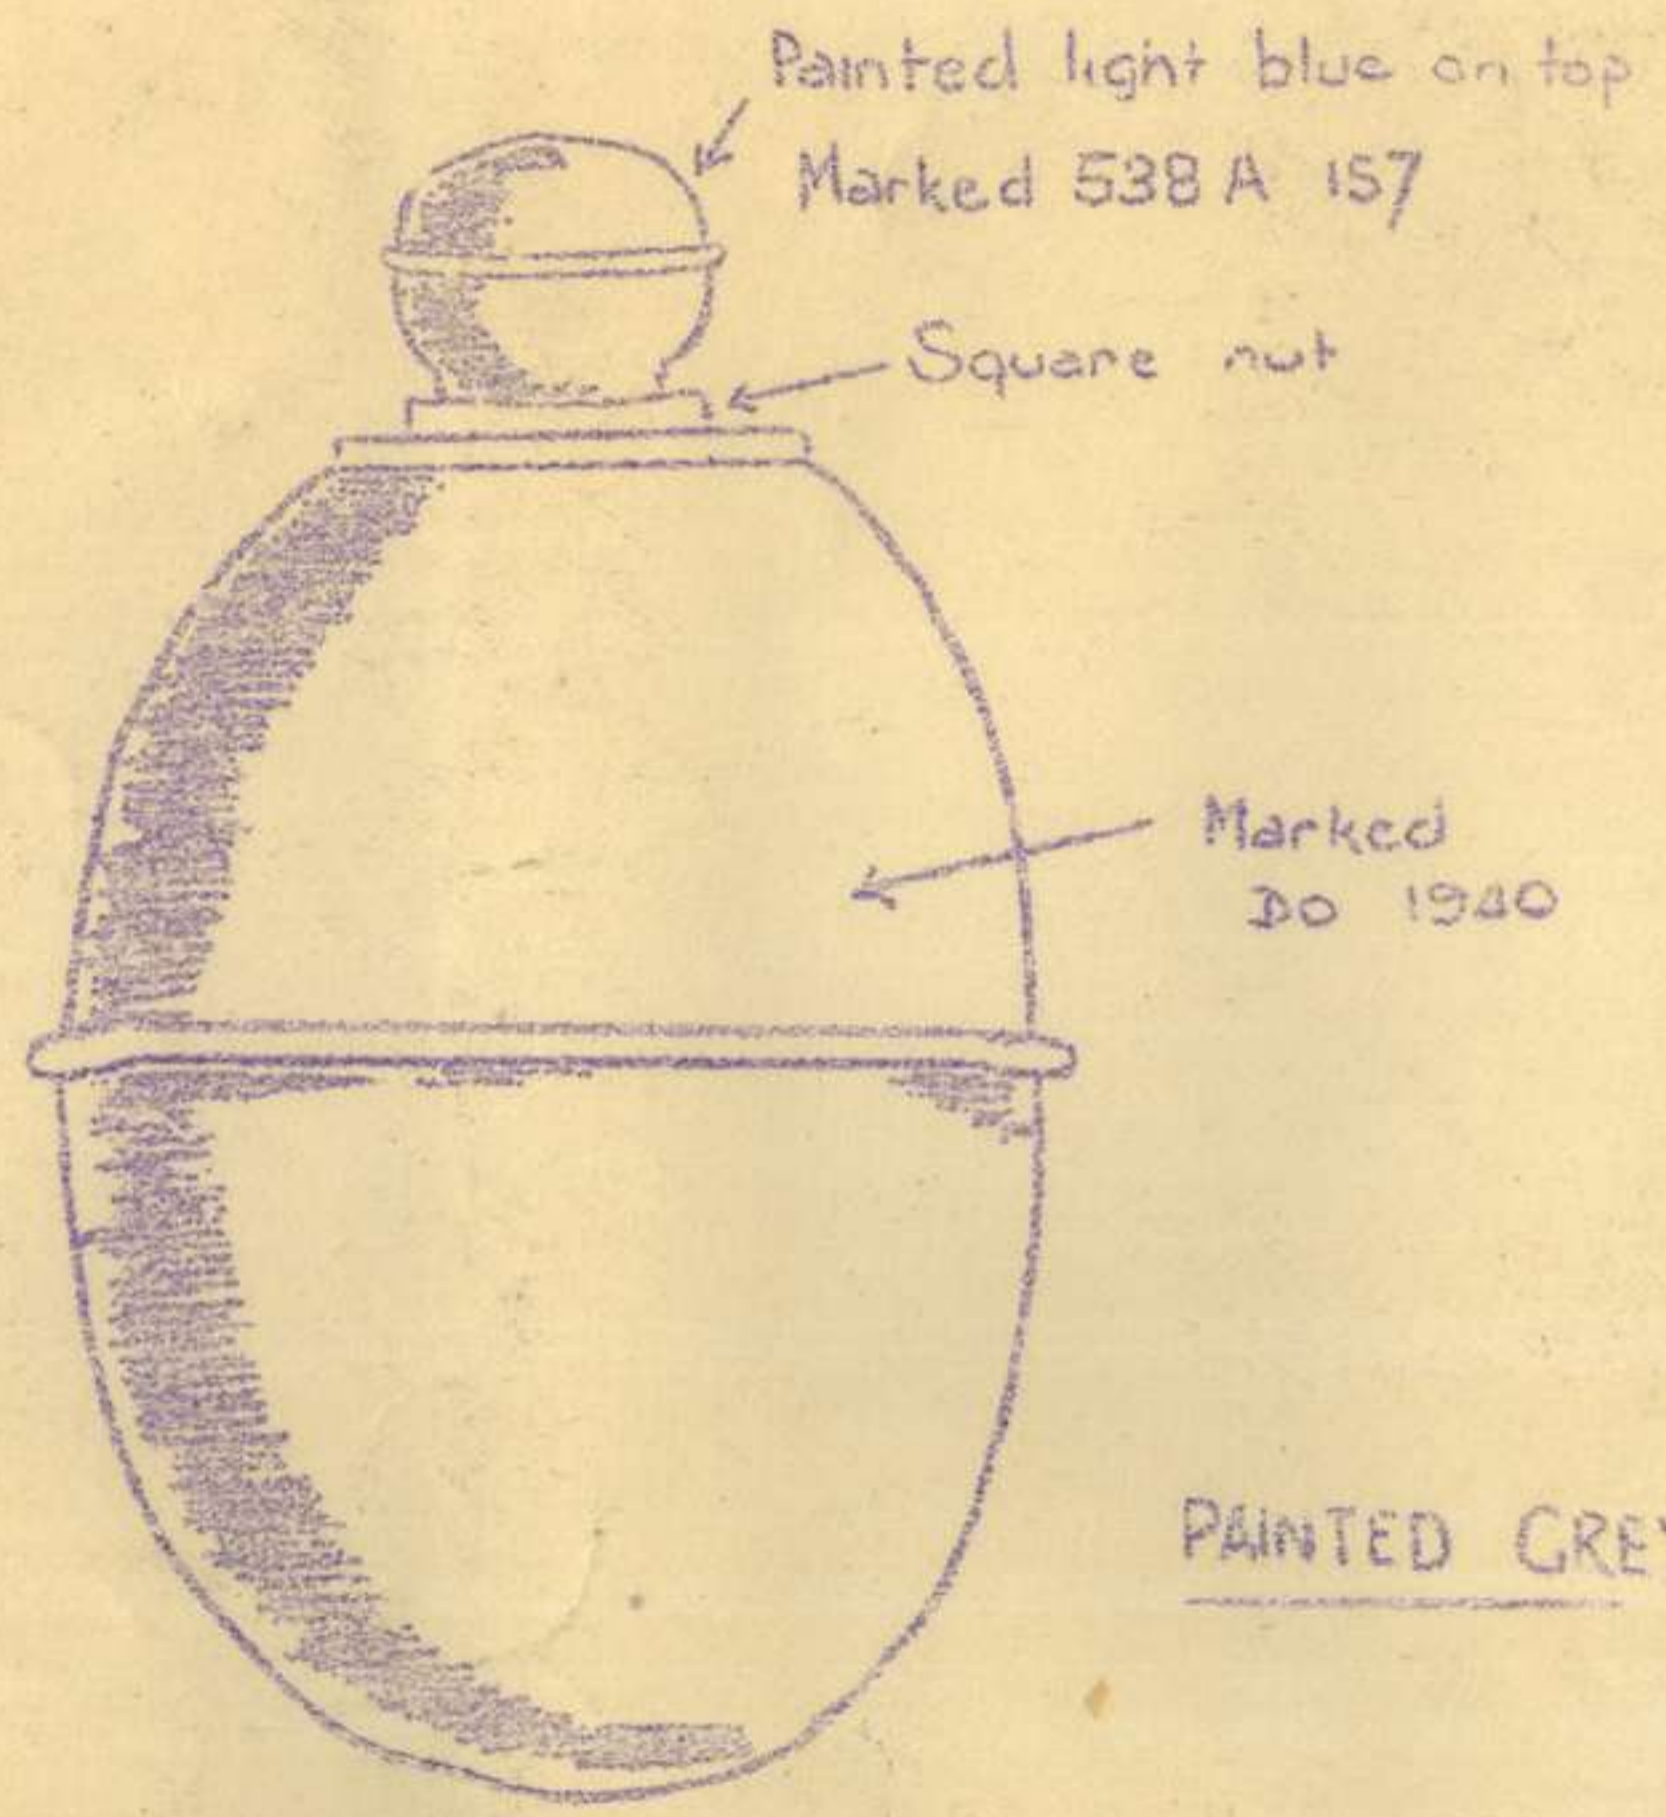 Painted light blue on top
Marked 538 A 157
Square nut
Marked
DO 1940
PAINTED GREY